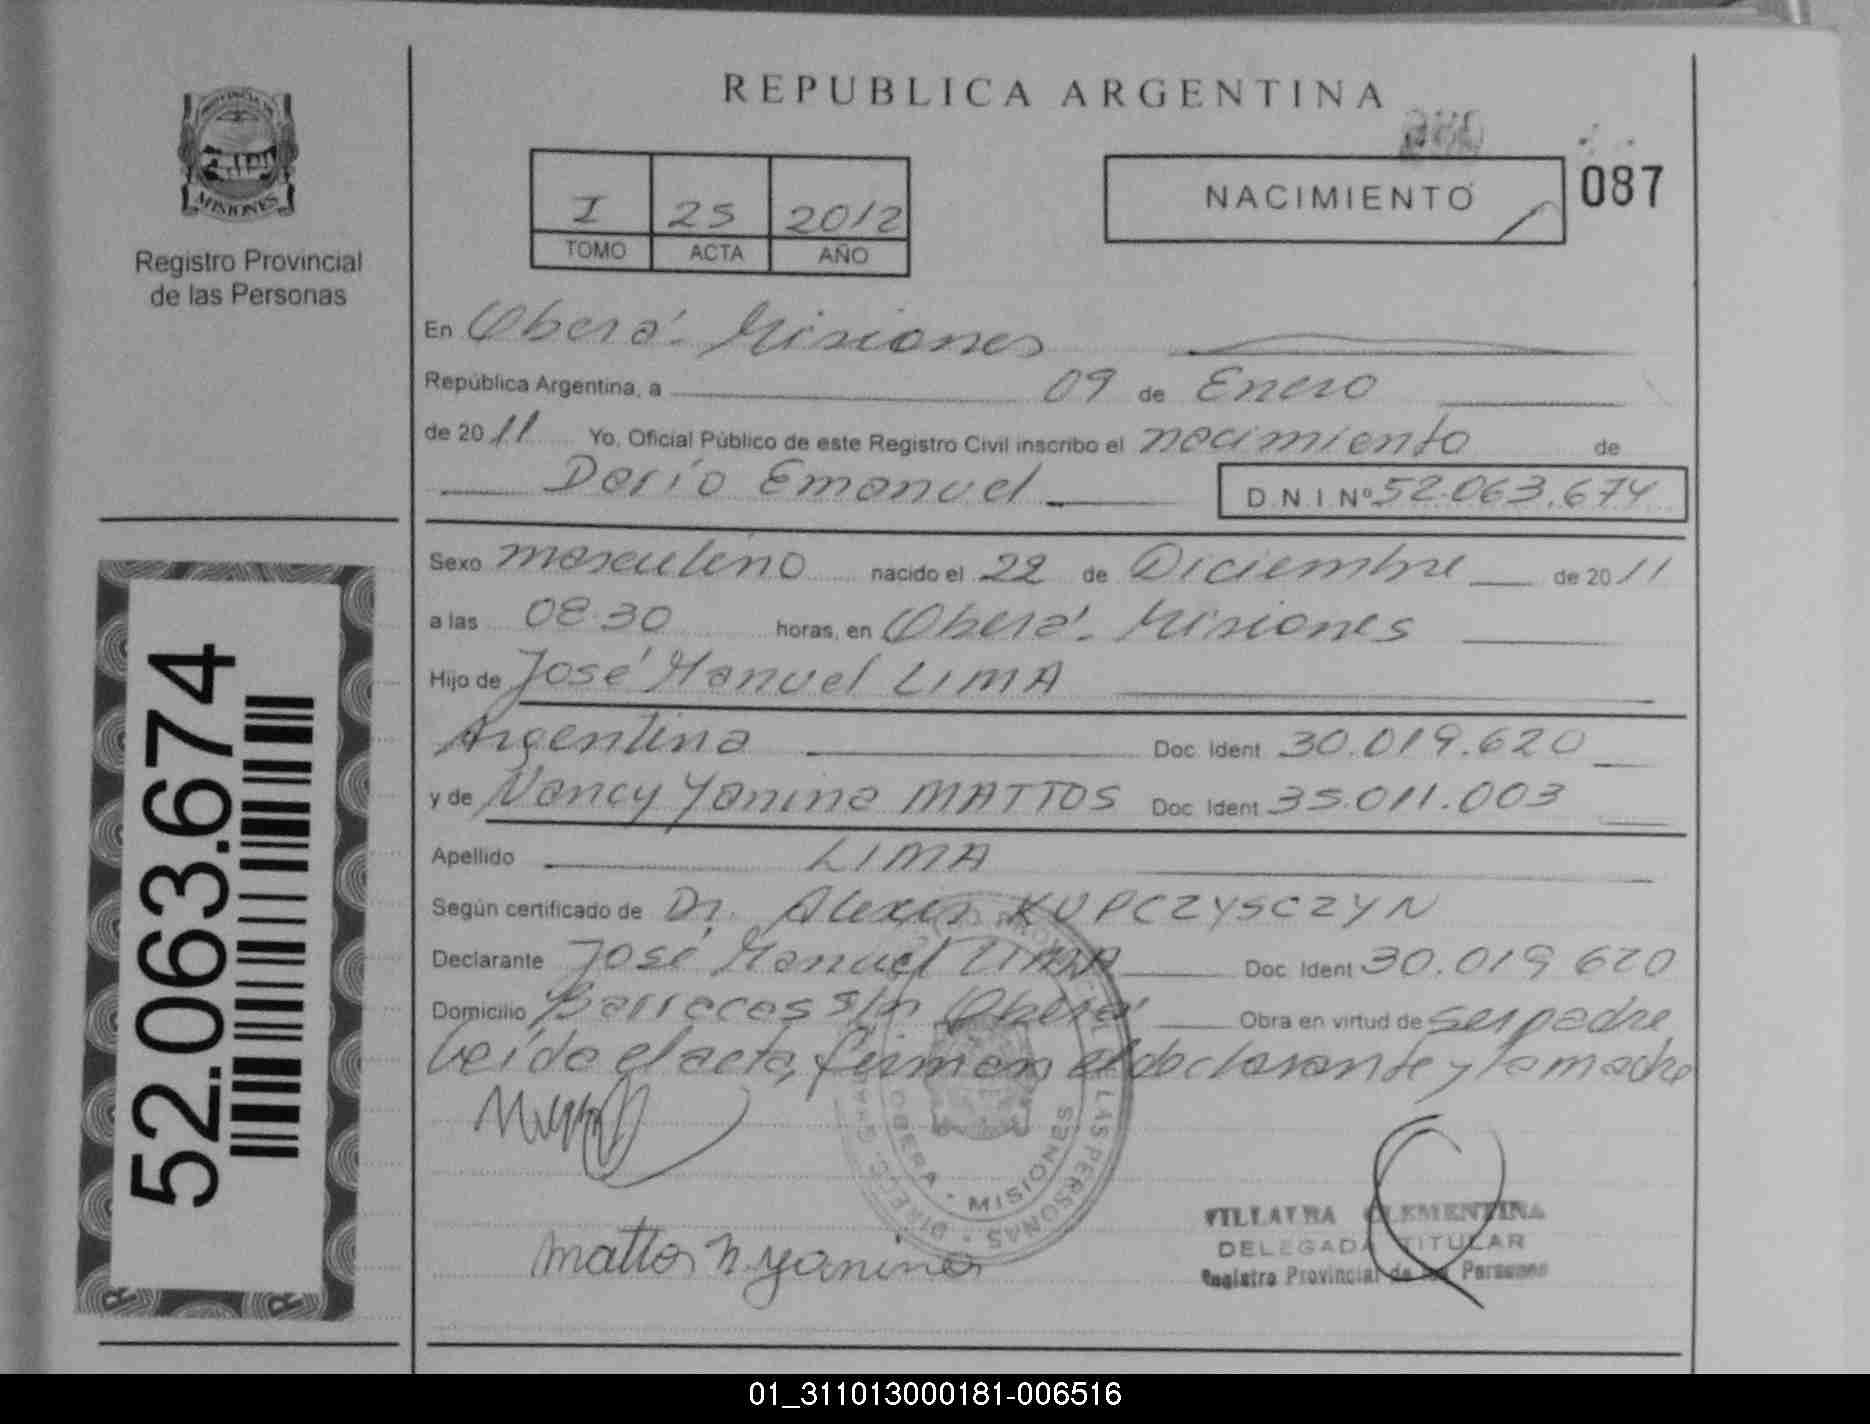 REPUBLICA ARGENTINA
PROVINCIA DE
MISIONES
Registro Provincial
de las Personas
I 25 2012
TOMO ACTA AÑO
NACIMIENTO 087
En Oberá - Misiones
República Argentina, a 09 de Enero
de 2011 Yo, Oficial Público de este Registro Civil inscribo el nacimiento de
Darío Emanuel D.N.I.Nº 52.063.674
Sexo masculino nacido el 22 de Diciembre de 2011
a las 08.30 horas, en Oberá - Misiones
Hijo de José Manuel LIMA
Argentina Doc. Ident 30.019.620
y de Nancy Yanina MATTOS Doc. Ident 35.011.003
Apellido LIMA
Según certificado de Dr. Alexis KUPCZYSCZYN
Declarante José Manuel LIMA Doc. Ident 30.019 620
Domicilio Barracas s/n Oberá Obra en virtud de ser padre
Leída el acta, firman el declarante y la madre
OBERA - MISIONES
LAS PERSONAS
Mattos N. Yanina
VILLALBA CLEMENTINA
DELEGADA TITULAR
Registro Provincial de las Personas
52.063.674
01_311013000181-006516